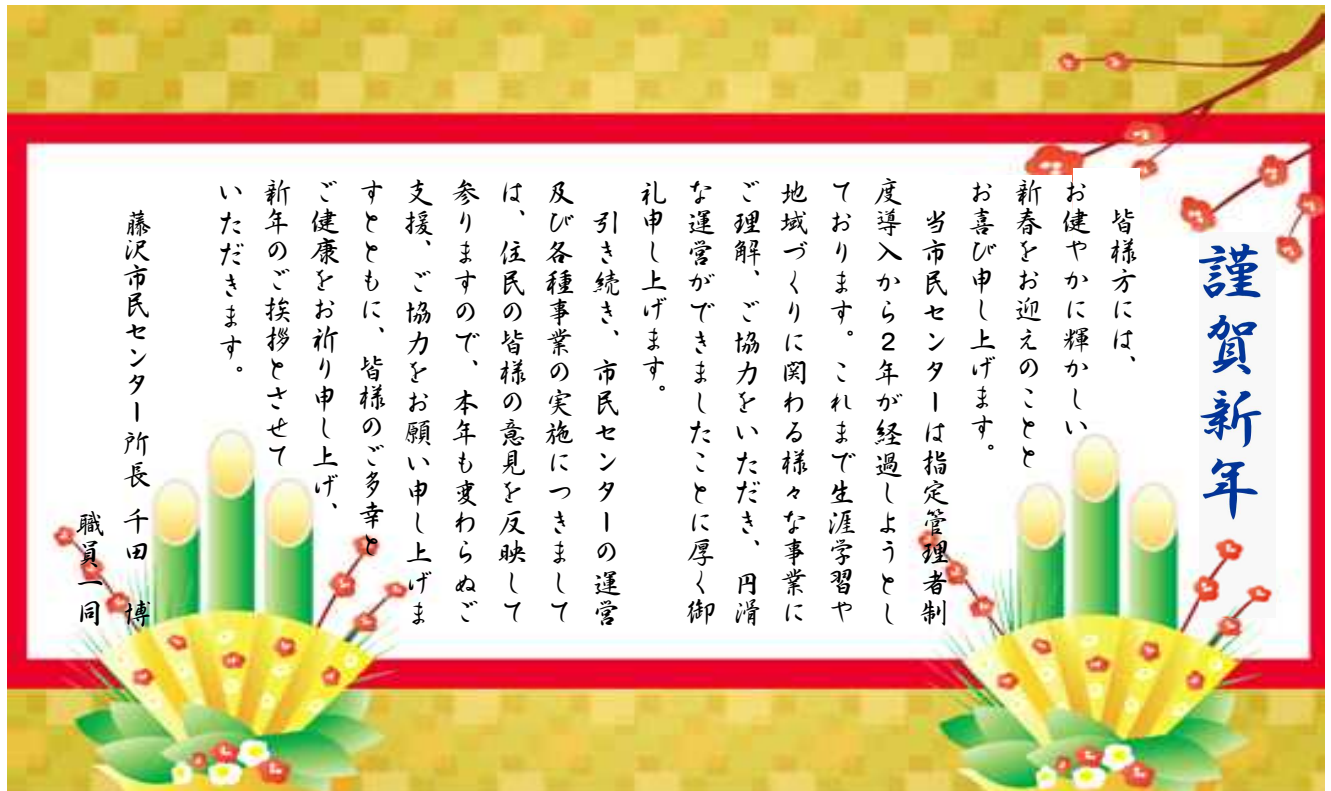 謹賀新年
皆様方には、
お健やかに輝かしい
新春をお迎えのことと
お喜び申し上げます。
当市民センターは指定管理者制
度導入から２年が経過しようとし
ております。これまで生涯学習や
地域づくりに関わる様々な事業に
ご理解、ご協力をいただき、円滑
な運営ができましたことに厚く御
礼申し上げます。
引き続き、市民センターの運営
及び各種事業の実施につきまして
は、住民の皆様の意見を反映して
参りますので、本年も変わらぬご
支援、ご協力をお願い申し上げま
すとともに、皆様のご多幸と
ご健康をお祈り申し上げ、
新年のご挨拶とさせて
いただきます。
藤沢市民センター所長 千田 博
職員一同